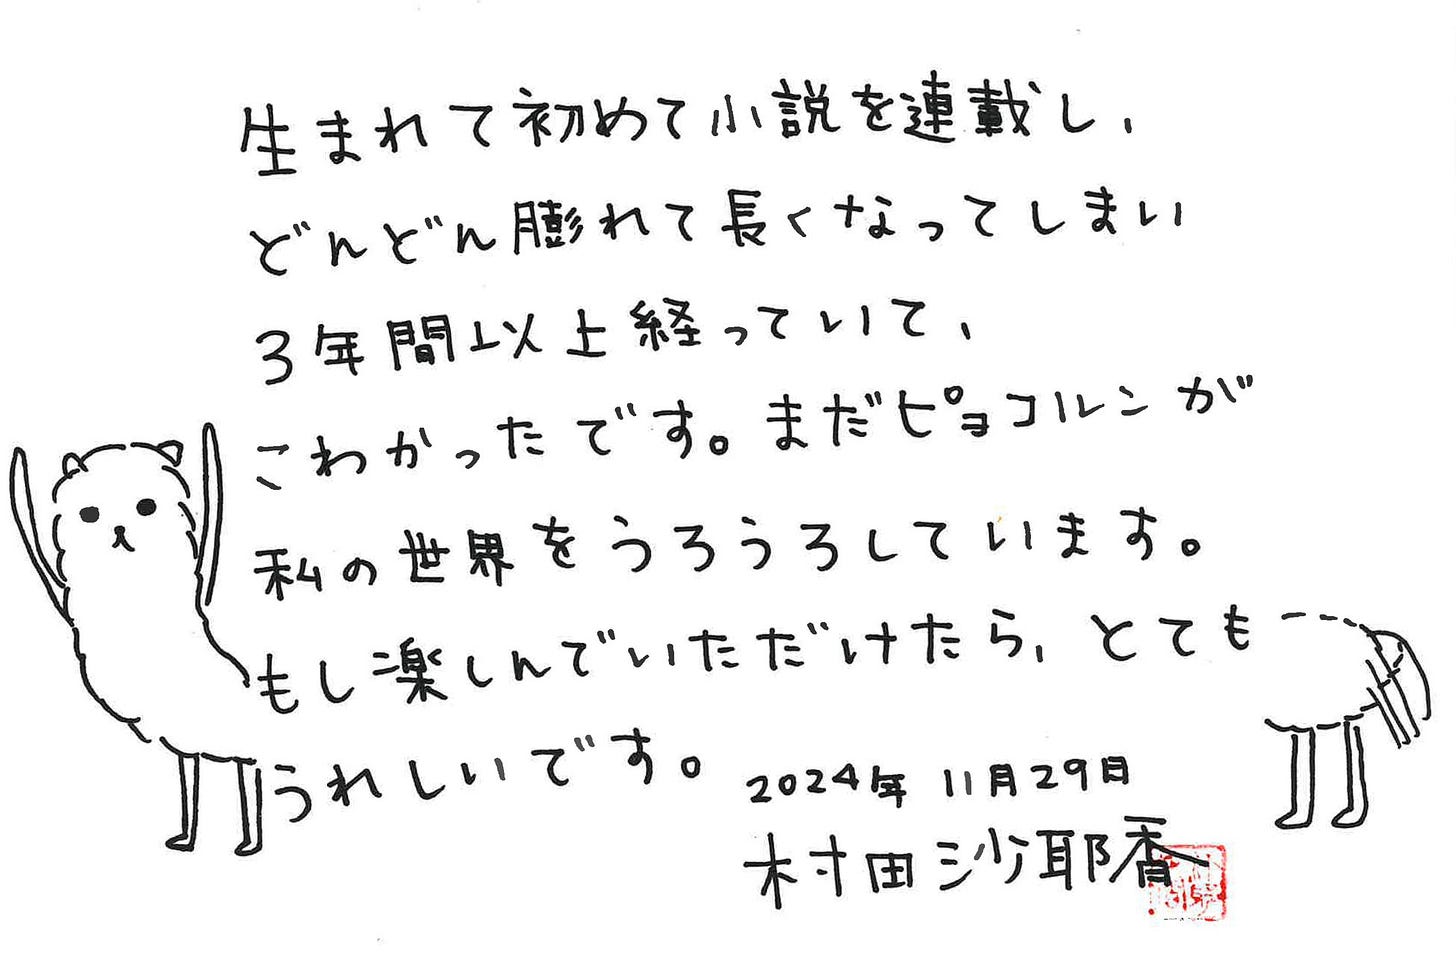 生まれて初めて小説を連載し、
どんどん膨れて長くなってしまい
3年間以上経っていて、
こわかったです。まだピョコルンが
私の世界をうろうろしています。
もし楽しんでいただけたら、とても
うれしいです。
2024年11月29日
村田沙耶香